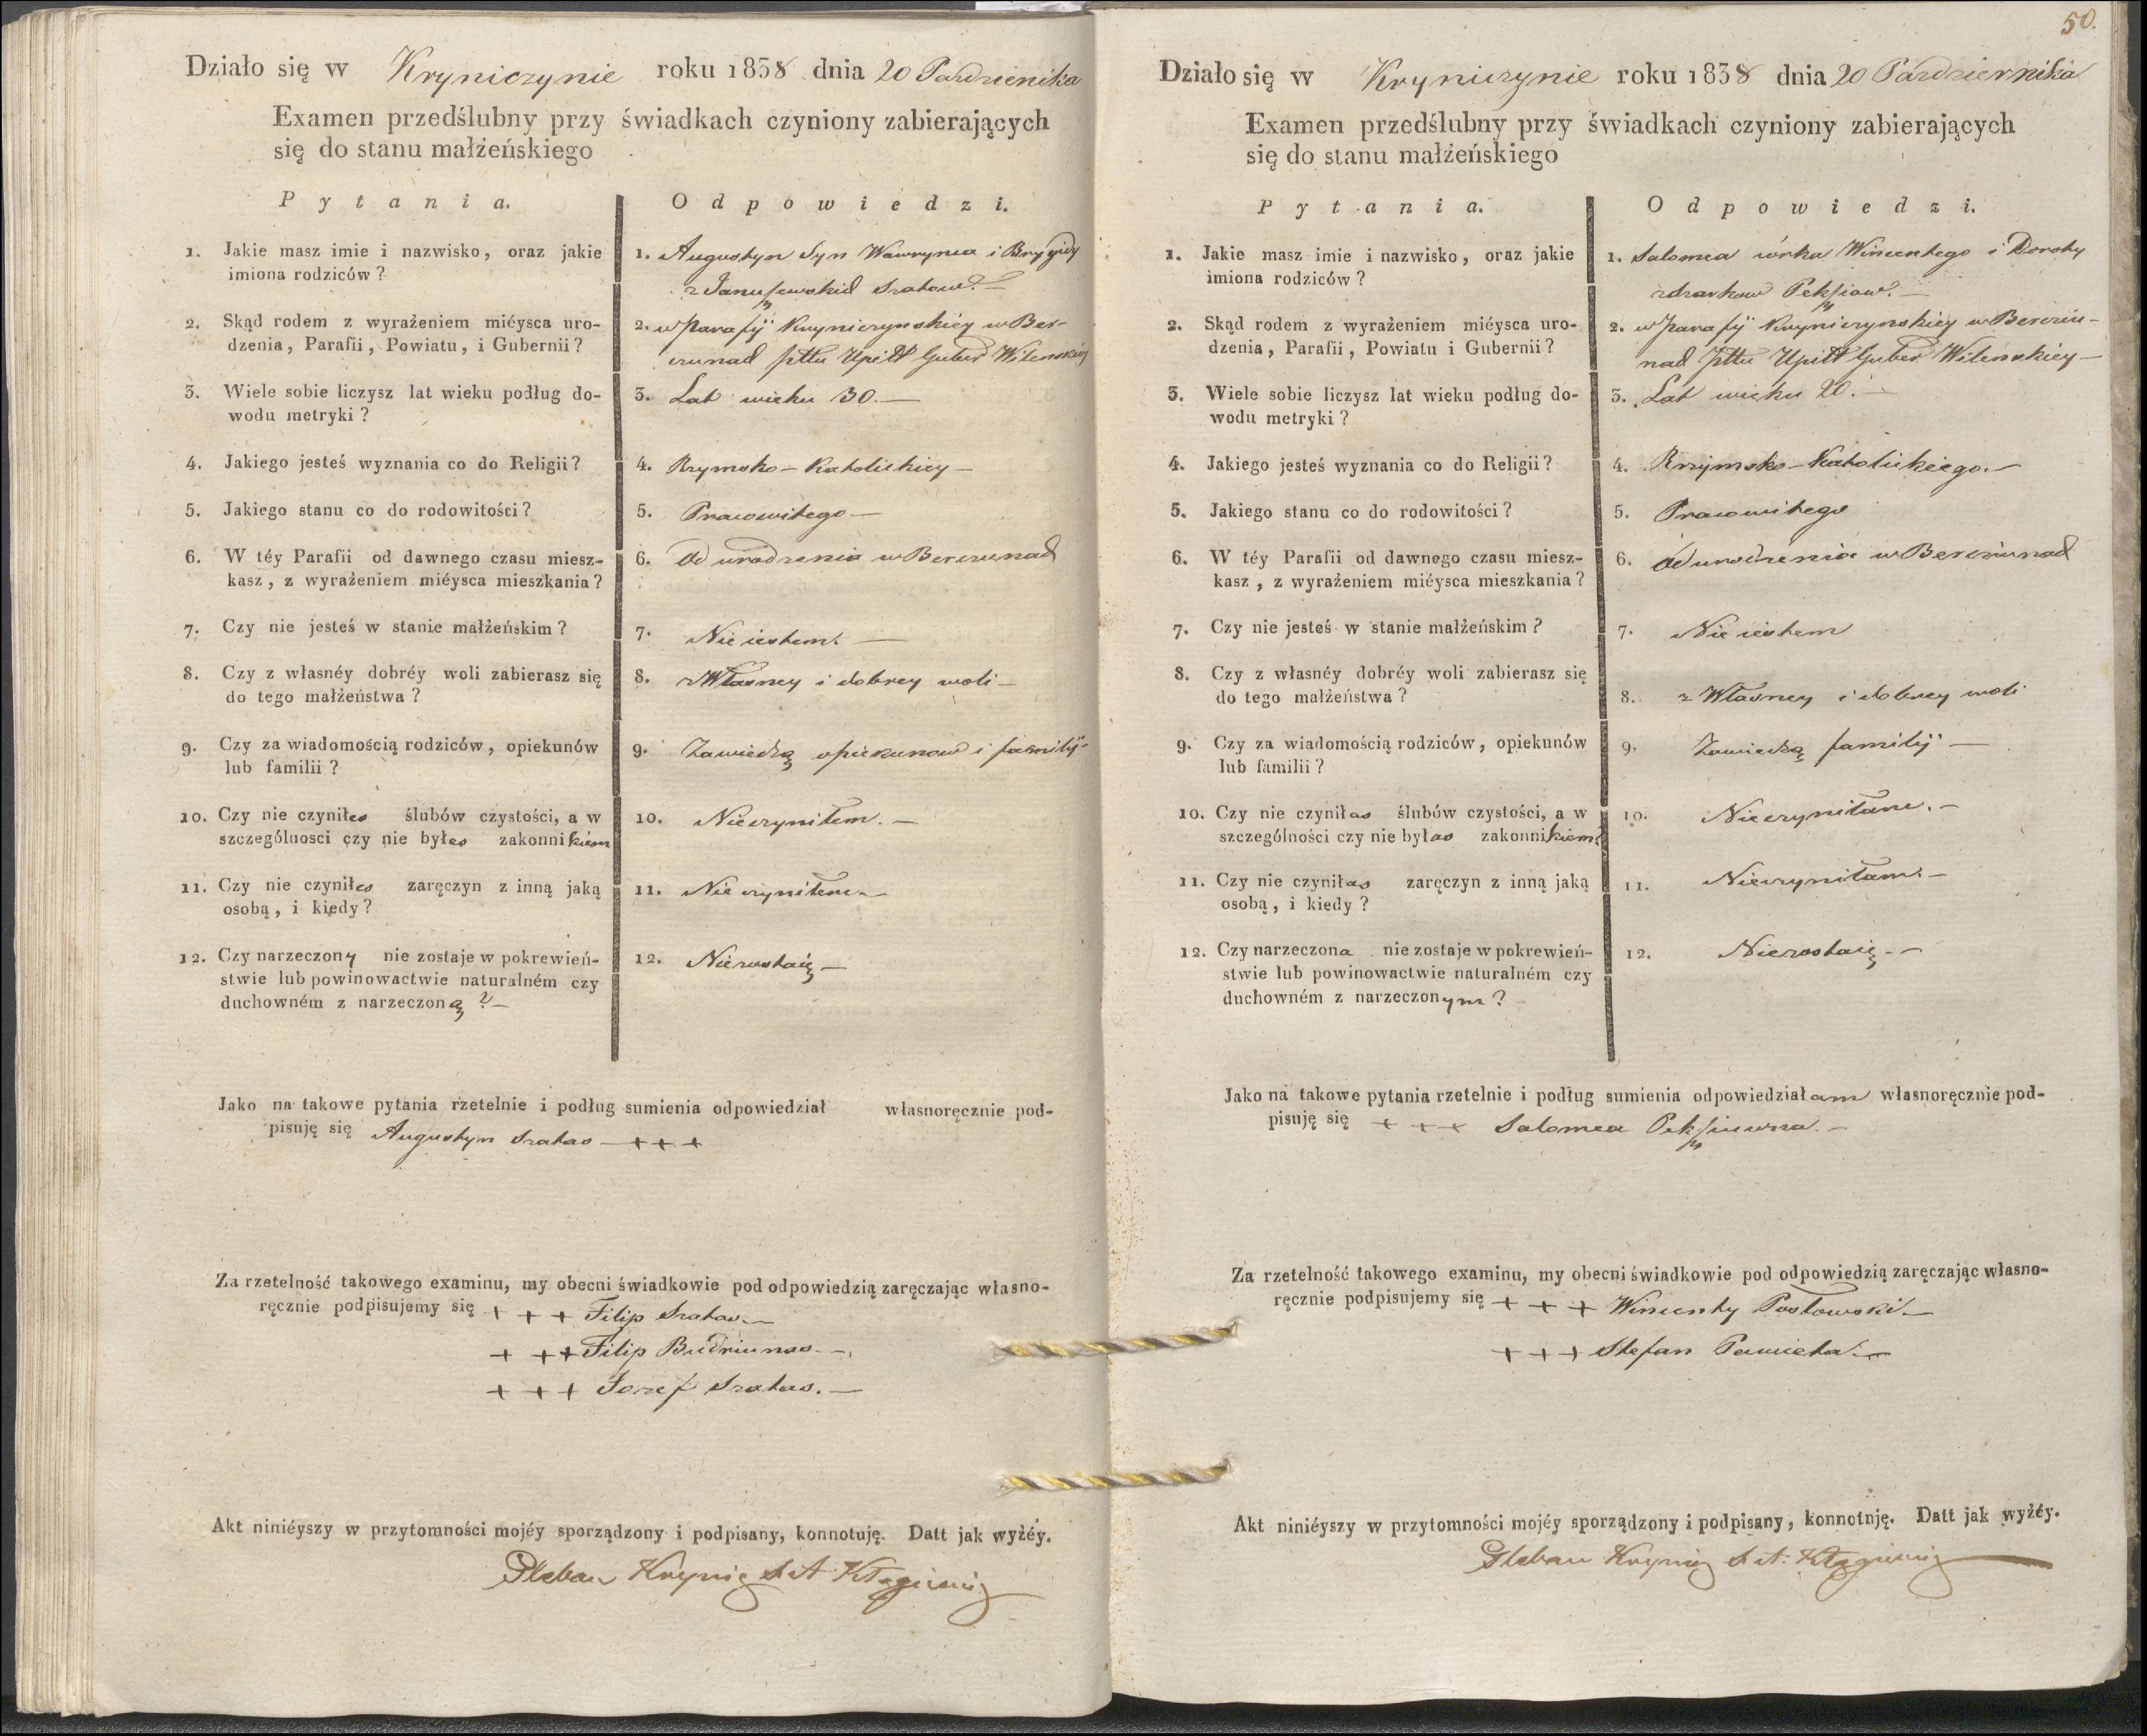 Działo się w Kryniczynie roku 1838 dnia 20 Pazdzienika
Examen przedślubny przy świadkach czyniony zabierających
się do stanu małżeńskiego
Pytania. Odpowiedzi.
1. Jakie masz imie i nazwisko, oraz jakie
imiona rodziców?
1. Augustyn Syn Wawrynca i Brygidy
z Januszewskich Szatow
2. Skąd rodem z wyrażeniem miéysca uro-
dzenia, Parafii, Powiatu, i Gubernii?
2. w Parafij Kryniczynskiey w Ber-
czunach pttu Upitt Guber Wilenskiey
3. Wiele sobie liczysz lat wieku podług do-
wodu metryki?
3. Lat wieku 30. —
4. Jakiego jesteś wyznania co do Religii?
4. Rzymsko-Katolickiey —
5. Jakiego stanu co do rodowitości?
5. Pracowitego —
6. W téy Parafii od dawnego czasu miesz-
kasz, z wyrażeniem miéysca mieszkania?
6. Od urodzenia w Berczunach
7. Czy nie jesteś w stanie małżeńskim?
7. Nie iestem. —
8. Czy z własnéy dobréy woli zabierasz się
do tego małżeństwa?
8. z Własney i dobrey woli —
9. Czy za wiadomością rodziców, opiekunów
lub familii?
9. Zawiedzą opiekunow i familij
10. Czy nie czyniłes ślubów czystości, a w
szczególnosci czy nie byłes zakonnikiem
10. Nieczyniłem. —
11. Czy nie czyniłes zaręczyn z inną jaką
osobą, i kiedy?
11. Nie czyniłem —
12. Czy narzeczony nie zostaje w pokrewień-
stwie lub powinowactwie naturalném czy
duchowném z narzeczoną? —
12. Niezostaię —
Jako na takowe pytania rzetelnie i podług sumienia odpowiedział własnoręcznie pod-
pisuję się Augustyn Szatas — + + +
Za rzetelność takowego examinu, my obecni świadkowie pod odpowiedzią zaręczając własno-
ręcznie podpisujemy się + + + Filip Szatas. —
+ + + Filip Budriunas —
+ + + Jozef Szatas. —
Akt niniéyszy w przytomności mojéy sporządzony i podpisany, konnotuję. Datt jak wyżéy.
Pleban Krynicz
50.
Działo się w Kryniczynie roku 1838 dnia 20 Pazdziernika
Examen przedślubny przy świadkach czyniony zabierających
się do stanu małżeńskiego
Pytania. Odpowiedzi.
1. Jakie masz imie i nazwisko, oraz jakie
imiona rodziców?
1. Salomea córka Wincentego i Doroty
Pekszow. —
2. Skąd rodem z wyrażeniem miéysca uro-
dzenia, Parafii, Powiatu i Gubernii?
2. w Parafij Kryniczynskiey w Bercziu-
nach Pttu Upitt Guber Wilenskiey —
3. Wiele sobie liczysz lat wieku podług do-
wodu metryki?
3. Lat wieku 20. —
4. Jakiego jesteś wyznania co do Religii?
4. Rzymsko-Katolickiego —
5. Jakiego stanu co do rodowitości?
5. Pracowitego
6. W téy Parafii od dawnego czasu miesz-
kasz, z wyrażeniem miéysca mieszkania?
6. Od urodzenia w Bercziunach
7. Czy nie jesteś w stanie małżeńskim?
7. Nie iestem
8. Czy z własnéy dobréy woli zabierasz się
do tego małżeństwa?
8. z Własney i dobrey woli
9. Czy za wiadomością rodziców, opiekunów
lub familii?
9. Zawiedzą familij —
10. Czy nie czyniłas ślubów czystości, a w
szczególności czy nie byłas zakonnikiem?
10. Nieczyniłam. —
11. Czy nie czyniłas zaręczyn z inną jaką
osobą, i kiedy?
11. Nieczyniłam. —
12. Czy narzeczona nie zostaje w pokrewień-
stwie lub powinowactwie naturalném czy
duchowném z narzeczonym?
12. Niezostaię —
Jako na takowe pytania rzetelnie i podług sumienia odpowiedziałam własnoręcznie pod-
pisuję się + + + Salomea Pekszuwna. —
Za rzetelność takowego examinu, my obecni świadkowie pod odpowiedzią zaręczając własno-
ręcznie podpisujemy się + + + Wincenty Postowski —
+ + + Stefan
Akt niniéyszy w przytomności mojéy sporządzony i podpisany, konnotnję. Datt jak wyżéy.
Pleban Krynicz